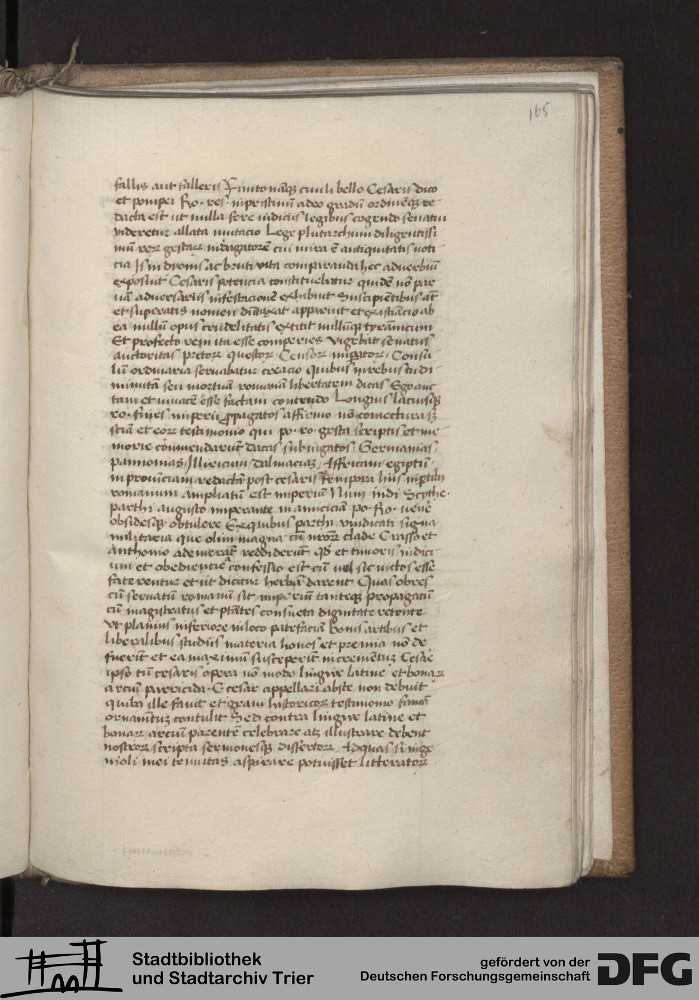 165
fallis aut falleris Finito nāq; ciuili bello Cesaris dico
et pompei Ro. res. in pristinum adeo gradū ordinēq; re
dacta est ut nulla fere iudiciis legibus cogendo senatui
videretur allata mutacio Lege plutarchum diligentissi
mū rerꝝ gestarꝝ indagatorē cui mira ē antiquitatis noti
cia Is in dionis ac bruti vita comparanda hec ad verbū
exposuit Cesaris potencia constituebatur quidē nō par
uā adversariis infestacionē exhibuit Suscipientibus aūt
et superatis nomen dūtaxat apparuit et existiācio ab
ea nullū opus crudelitatis extitit nullūq; tyrānicum
Et profecto rem ita esse comperies Vigebat senatus
auctoritas pretorꝝ questorꝝ Censorꝝ īpatorꝝ Consu
lū ordinaria servabatur creacio quibus in rebus tu di
minutā seu mortuā romanā libertatem dicas Ego auc
tam et vivacē esse factam contendo Longius laciusq;
ro. fines imperii ꝓpagatos affirmo nō coniectura sꝫ
sciā et eorꝝ testimonio qui po. ro. gesta scriptis et me
morie cōmendarūt dacas subiugatos Germanias
pannonias Illiricum Dalmaciaꝫ Affricam egiptū
in provinciam redactā post cesaris tempora hiis
romanum ampliatū est imperiū Num indi Scythe
parthi augusto imperante in amiciciam po. Ro. vene
obsidesq; obtulere Ex quibus parthi vindicati signa
militaria que olim magna cū nrorꝝ clade Crasso et
anthonio ademerāt reddiderūt Qd et timoris indici
um et obediencie confessio est cū vel sic victos esse
faterentur et ut dicitur herbā darent Quas obres
cū servatū romanū sit imperiū tanteq; propagatū
cū magistratus et ptātes consueta dignitate retente
Vt planius inferiore in loco patefaciā bonis artibus et
liberalibus studiis materia honos et premia nō de
fuerīt et ea maximū susceperīt incrementū Cesare
ipso tū cesaris opera nō modo lingue latine et bonarꝝ
arciū parricida. C cesar appellari abste non debuit
quibus ille favit et gravi historicorꝝ testimonio
ornamētuꝫ contulit Sed contra lingue latine et
bonarꝝ arciū parentē celebrare atꝫ illustrare debent
nostrorꝝ scripta sermonesq; dissertorꝝ Ad quas si inge
nioli mei tenuitas aspirare potuisset litteratorꝝ
Stadtbibliothek
und Stadtarchiv Trier
gefördert von der
Deutschen Forschungsgemeinschaft
DFG